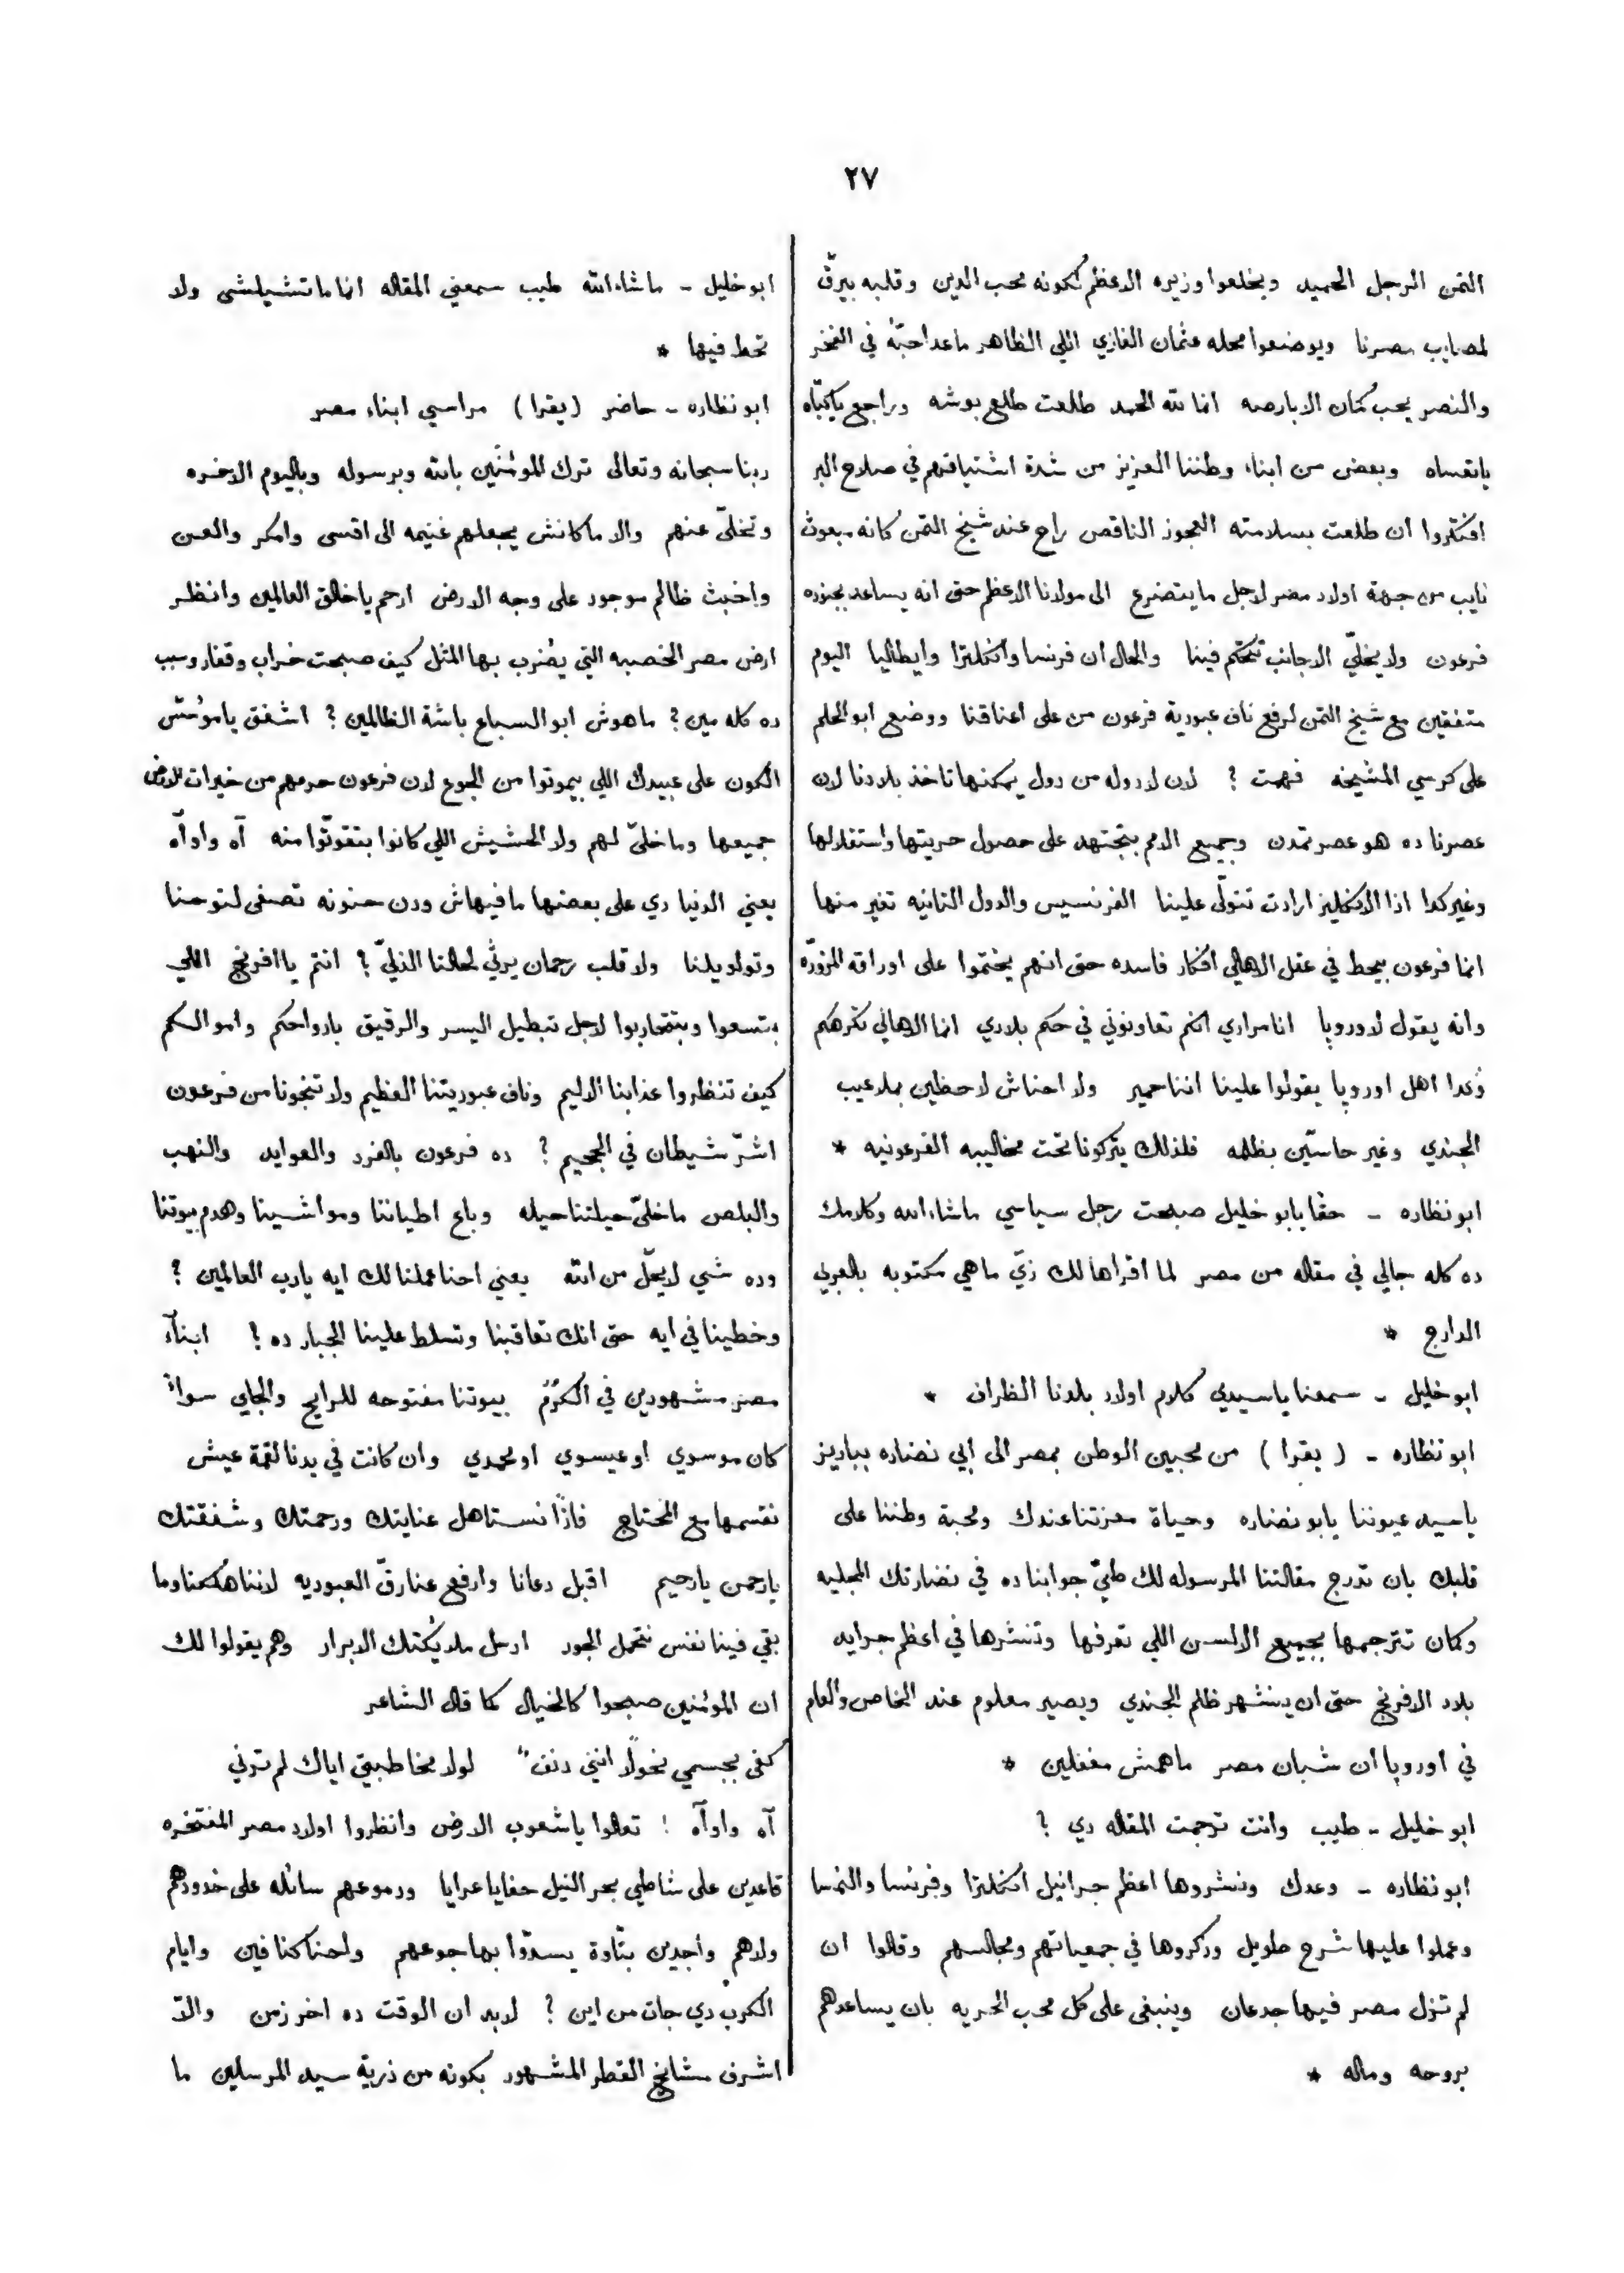 ٢٧
التمن الرجل الحميد ويخلعوا وزيره الاعظم لكونه محب الدين وقلبه بيرقّ
لمصايب مصرنا ويوضعوا محله عثمان الغازي اللي الظاهر ماعدا حبّهُ في الفخر
والنصر يحب كمان الابارصه انما لله الحمد طلعت طلع بوشه وراجع ياكبّاه
ياتعساه وبعض من ابناء وطننا العزيز من شدة اشتياقهم في صلاح البر
افتكروا ان طلعت بسلامته العجوز الناقص راح عند شيخ التمن كانه مبعوث
نايب من جهة اولاد مصر لاجل ما يتضرع الى مولانا الاعظم حتى انه يساعد بجنوده
فرعون ولا يخليّ الاجانب تتحكم فينا والحال ان فرنسا وانكلترا وايطاليا اليوم
متفقين مع شيخ التمن لرفع ناف عبودية فرعون من على اعناقنا ووضع ابو الحلم
على كرسي المشيخه فهمت ؟ لان لا دوله من دول يمكنها تاخذ بلادنا لان
عصرنا ده هو عصر تمدن وجميع الامم بتجتهد على حصول حريتها واستقلالها
وغير كدا اذا الانكليز ارادت تتولّى علينا الفرنسيس والدول التانيه تغير منها
انما فرعون بيحط في عقل الاهالي افكار فاسده حتى انهم يختموا على اوراقه المزوّره
وانه يقول لاوروپا انا مرادي انكم تعاونوني في حكم بلادي انما الاهالي تكرهكم
وُكدا اهل اوروپا يقولوا علينا اننا حمير ولا احناش لاحظين بملاعيب
الجندي وغير حاسّين بظلمه فلذلك يتركونا تحت مخاليبه الفرعونيه *
ابو نظاره - حقا يابو خليل صبحت رجل سياسي ماشاء الله وكلامك
ده كله جالي في مقاله من مصر لما اقراها لك زيّ ماهي مكتوبه بالعربي
الدارج *
ابو خليل - سمعنا ياسيدي كلام اولاد بلدنا الظراف *
ابو نظاره - ( يقرا ) من محبين الوطن بمصر الى ابي نضاره بباريز
ياسيد عيوننا يابو نضاره وحياة معزتنا عندك ومحبة وطننا على
قلبك بان تدرج مقالتنا المرسوله لك طيّ جوابنا ده في نضارتك المجليه
وكمان تترجمها بجميع الالسن اللي تعرفها وتنشرها في اعظم جرايد
بلاد الافرنج حتى ان ينشهر ظلم الجندي ويصير معلوم عند الخاص والعام
في اوروپا ان شبان مصر ماهمش مغفلين *
ابو خليل - طيب وانت ترجمت المقاله دي ؟
ابو نظاره - وعدك ونشروها اعظم جرانيل انكلترا وفرنسا والنمسا
وعملوا عليها شرح طويل وذكروها في جمعياتهم ومجالسهم وقالوا ان
لم تزل مصر فيها جدعان وينبغى على كل محب الحريه بان يساعدهم
بروحه وماله *
ابو خليل - ماشاء الله طيب سمعني المقاله انما ماتشيلشى ولا
تحط فيها *
ابو نظاره - حاضر ( يقرا ) مراسي ابناء مصر
ربنا سبحانه وتعالى ترك المومُنين بالله وبرسوله وباليوم الاخره
وتخلّى عنهم والا ماكانش يجعلهم غنيمه الى اقسى وامكر والعن
واخبث ظالم موجود على وجه الارض ارحم ياخالق العالمين وانظر
ارض مصر الخصبه التي يضرب بها المثل كيف صبحت خراب وقفار وسبب
ده كله مين ؟ ماهوش ابو السباع باشة الظالمين ؟ اشفق يا موسّس
الكون على عبيدك اللي بيموتوا من الجوع لان فرعون حرمهم من خيرات الارض
جميعها وما خلىّ لهم ولا الحشيش اللي كانوا بتقوّتوا منه آه واواه
يعني الدنيا دي على بعضها مافيهاش ودن حنونه تصغى لنوحنا
وتولويلنا ولا قلب رحمان يرثي لحالنا الذليّ ؟ انتم يا افرنج اللي
بتسعوا وبتتحاربوا لاجل تبطيل اليسر والرقيق بارواحكم واموالكم
كيف تنظروا عذابنا الاليم وناف عبوديتنا العظيم ولا تنجونا من فرعون
اشرّ شيطان في الجحيم ؟ ده فرعون بالفرد والعوايد والنهب
والبلص ماخلىّ حيلتنا حيله وباع اطياننا ومواشينا وهدم بيوتنا
وده شي لا يحلّ من الله يعني احنا عملنا لك ايه يارب العالمين ؟
وخطينا في ايه حتى انك تعاقبنا وتسلط علينا الجبار ده ؟ ابناء
مصر مشهودين في الكرُم بيوتنا مفتوحه للرايح والجاي سواءً
كان موسوي او عيسوي او محمدي وان كانت في يدنا لقمة عيش
نقسمها مع المحتاج فاذًا نستاهل عنايتك ورحمتك وشفقتك
يارحمن يارحيم اقبل دعانا وارفع عنا رقّ العبوديه لاننا هُلكنا وما
بقي فينا نفس نتحمل الجور ارسل ملايُكتك الابرار وهم يقولوا لك
ان المومُنين صبحوا كالخيال كما قال الشاعر
كفى بجسمي نحولًا انني دنفٌ لولا مخاطبتي اياك لم ترني
آه واواه ! تعالوا ياشعوب الارض وانظروا اولاد مصر المفتخره
قاعدين على شاطي بحر النيل حفايا عرايا ودموعهم سائله على خدودهم
ولاهم واجدين بتّاوة يسدّوا بها جوعهم واحنا كنا فين وايام
الكرب دي جات من اين ؟ لابد ان الوقت ده اخر زمن والاّ
اشرف مشايخ القطر المشهور بكونه من ذرية سيد المرسلين ما